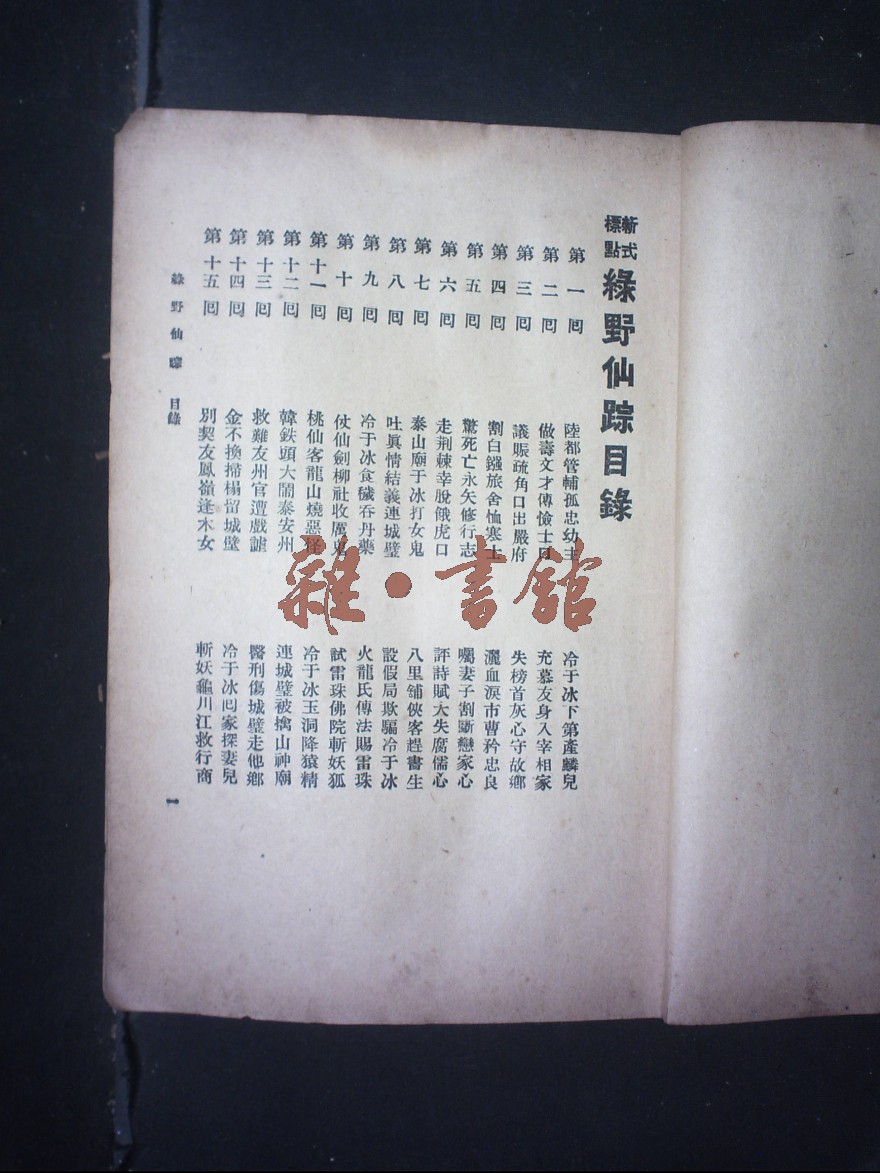 新式標點 綠野仙踪目錄
第一囘 陸都管輔孤忠幼主 冷于冰下第產麟兒
第二囘 做壽文才傳憸士口 充幕友身入宰相家
第三囘 議賑疏角口出嚴府 失榜首灰心守故鄉
第四囘 割白鏹旅舍恤寒士 灑血淚市曹矜忠良
第五囘 驚死亡永矢修行志 囑妻子割斷戀家心
第六囘 走荆棘幸脫餓虎口 評詩賦大失腐儒心
第七囘 泰山廟于冰打女鬼 八里舖俠客趕書生
第八囘 吐眞情結義連城璧 設假局欺騙冷于冰
第九囘 冷于冰食穢吞丹藥 火龍氏傳法賜雷珠
第十囘 仗仙劍柳社收厲鬼 試雷珠佛院斬妖狐
第十一囘 桃仙客龍山燒惡怪 冷于冰玉洞降猿精
第十二囘 韓鉄頭大鬧泰安州 連城璧被擒山神廟
第十三囘 救難友州官遭戲謔 醫刑傷城璧走他鄉
第十四囘 金不換掃榻留城璧 冷于冰囘家探妻兒
第十五囘 別契友鳳嶺逢木女 斬妖龜川江救行商
綠野仙踪 目錄 一
雜·書館